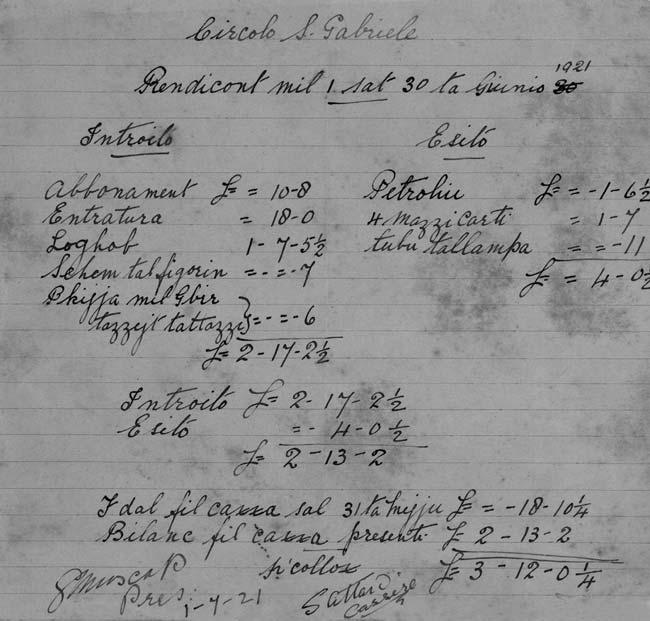 Circolo S. Gabriele
Rendicont mil 1 sat 30 ta Giunio 1921
Introito
Abbonament £ = 10-8
Entratura = 18-0
Loghob 1-7-5½
Schem tal figorin = - = -7
Pkijja mil Gbir
tazzejt tattazzi } = - = -6
£ = 2-17-2½
Esito
Petroliu £ = -1-6½
4 mazzi carti = 1-7
tubu tallampa = = -11
£ = 4-0½
Introito £ = 2-17-2½
Esito = - 4-0½
£ = 2-13-2
I dal fil cassa sal 31 ta Mejju £ = -18-10¼
Bilanc fil cassa presenti £ 2-13-2
£ = 3-12-0¼
Musca P
Pres: 1-7-21
Cassier